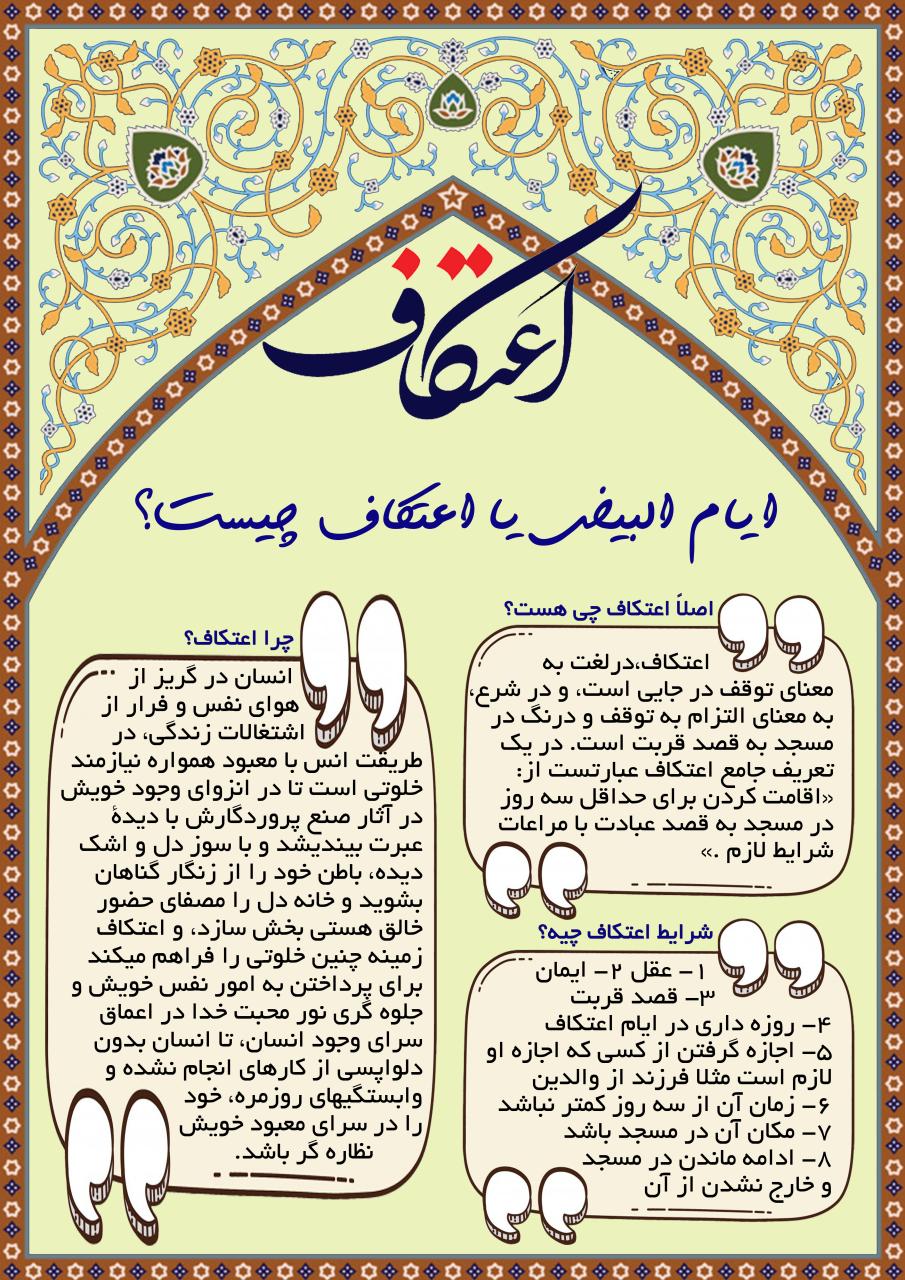 اعتکاف
ایام البیض یا اعتکاف چیست؟
اصلاً اعتکاف چی هست؟
اعتکاف،درلغت به
معنای توقف در جایی است، و در شرع،
به معنای التزام به توقف و درنگ در
مسجد به قصد قربت است. در یک
تعریف جامع اعتکاف عبارتست از:
«اقامت کردن برای حداقل سه روز
در مسجد به قصد عبادت با مراعات
شرایط لازم .»
شرایط اعتکاف چیه؟
۱- عقل ۲- ایمان
۳- قصد قربت
۴- روزه داری در ایام اعتکاف
۵- اجازه گرفتن از کسی که اجازه او
لازم است مثلا فرزند از والدین
۶- زمان آن از سه روز کمتر نباشد
۷- مکان آن در مسجد باشد
۸- ادامه ماندن در مسجد
و خارج نشدن از آن
چرا اعتکاف؟
انسان در گریز از
هوای نفس و فرار از
اشتغالات زندگی، در
طریقت انس با معبود همواره نیازمند
خلوتی است تا در انزوای وجود خویش
در آثار صنع پروردگارش با دیدۀ
عبرت بیندیشد و با سوز دل و اشک
دیده، باطن خود را از زنگار گناهان
بشوید و خانه دل را مصفای حضور
خالق هستی بخش سازد، و اعتکاف
زمینه چنین خلوتی را فراهم میکند
برای پرداختن به امور نفس خویش و
جلوه گری نور محبت خدا در اعماق
سرای وجود انسان، تا انسان بدون
دلواپسی از کارهای انجام نشده و
وابستگیهای روزمره، خود
را در سرای معبود خویش
نظاره گر باشد.